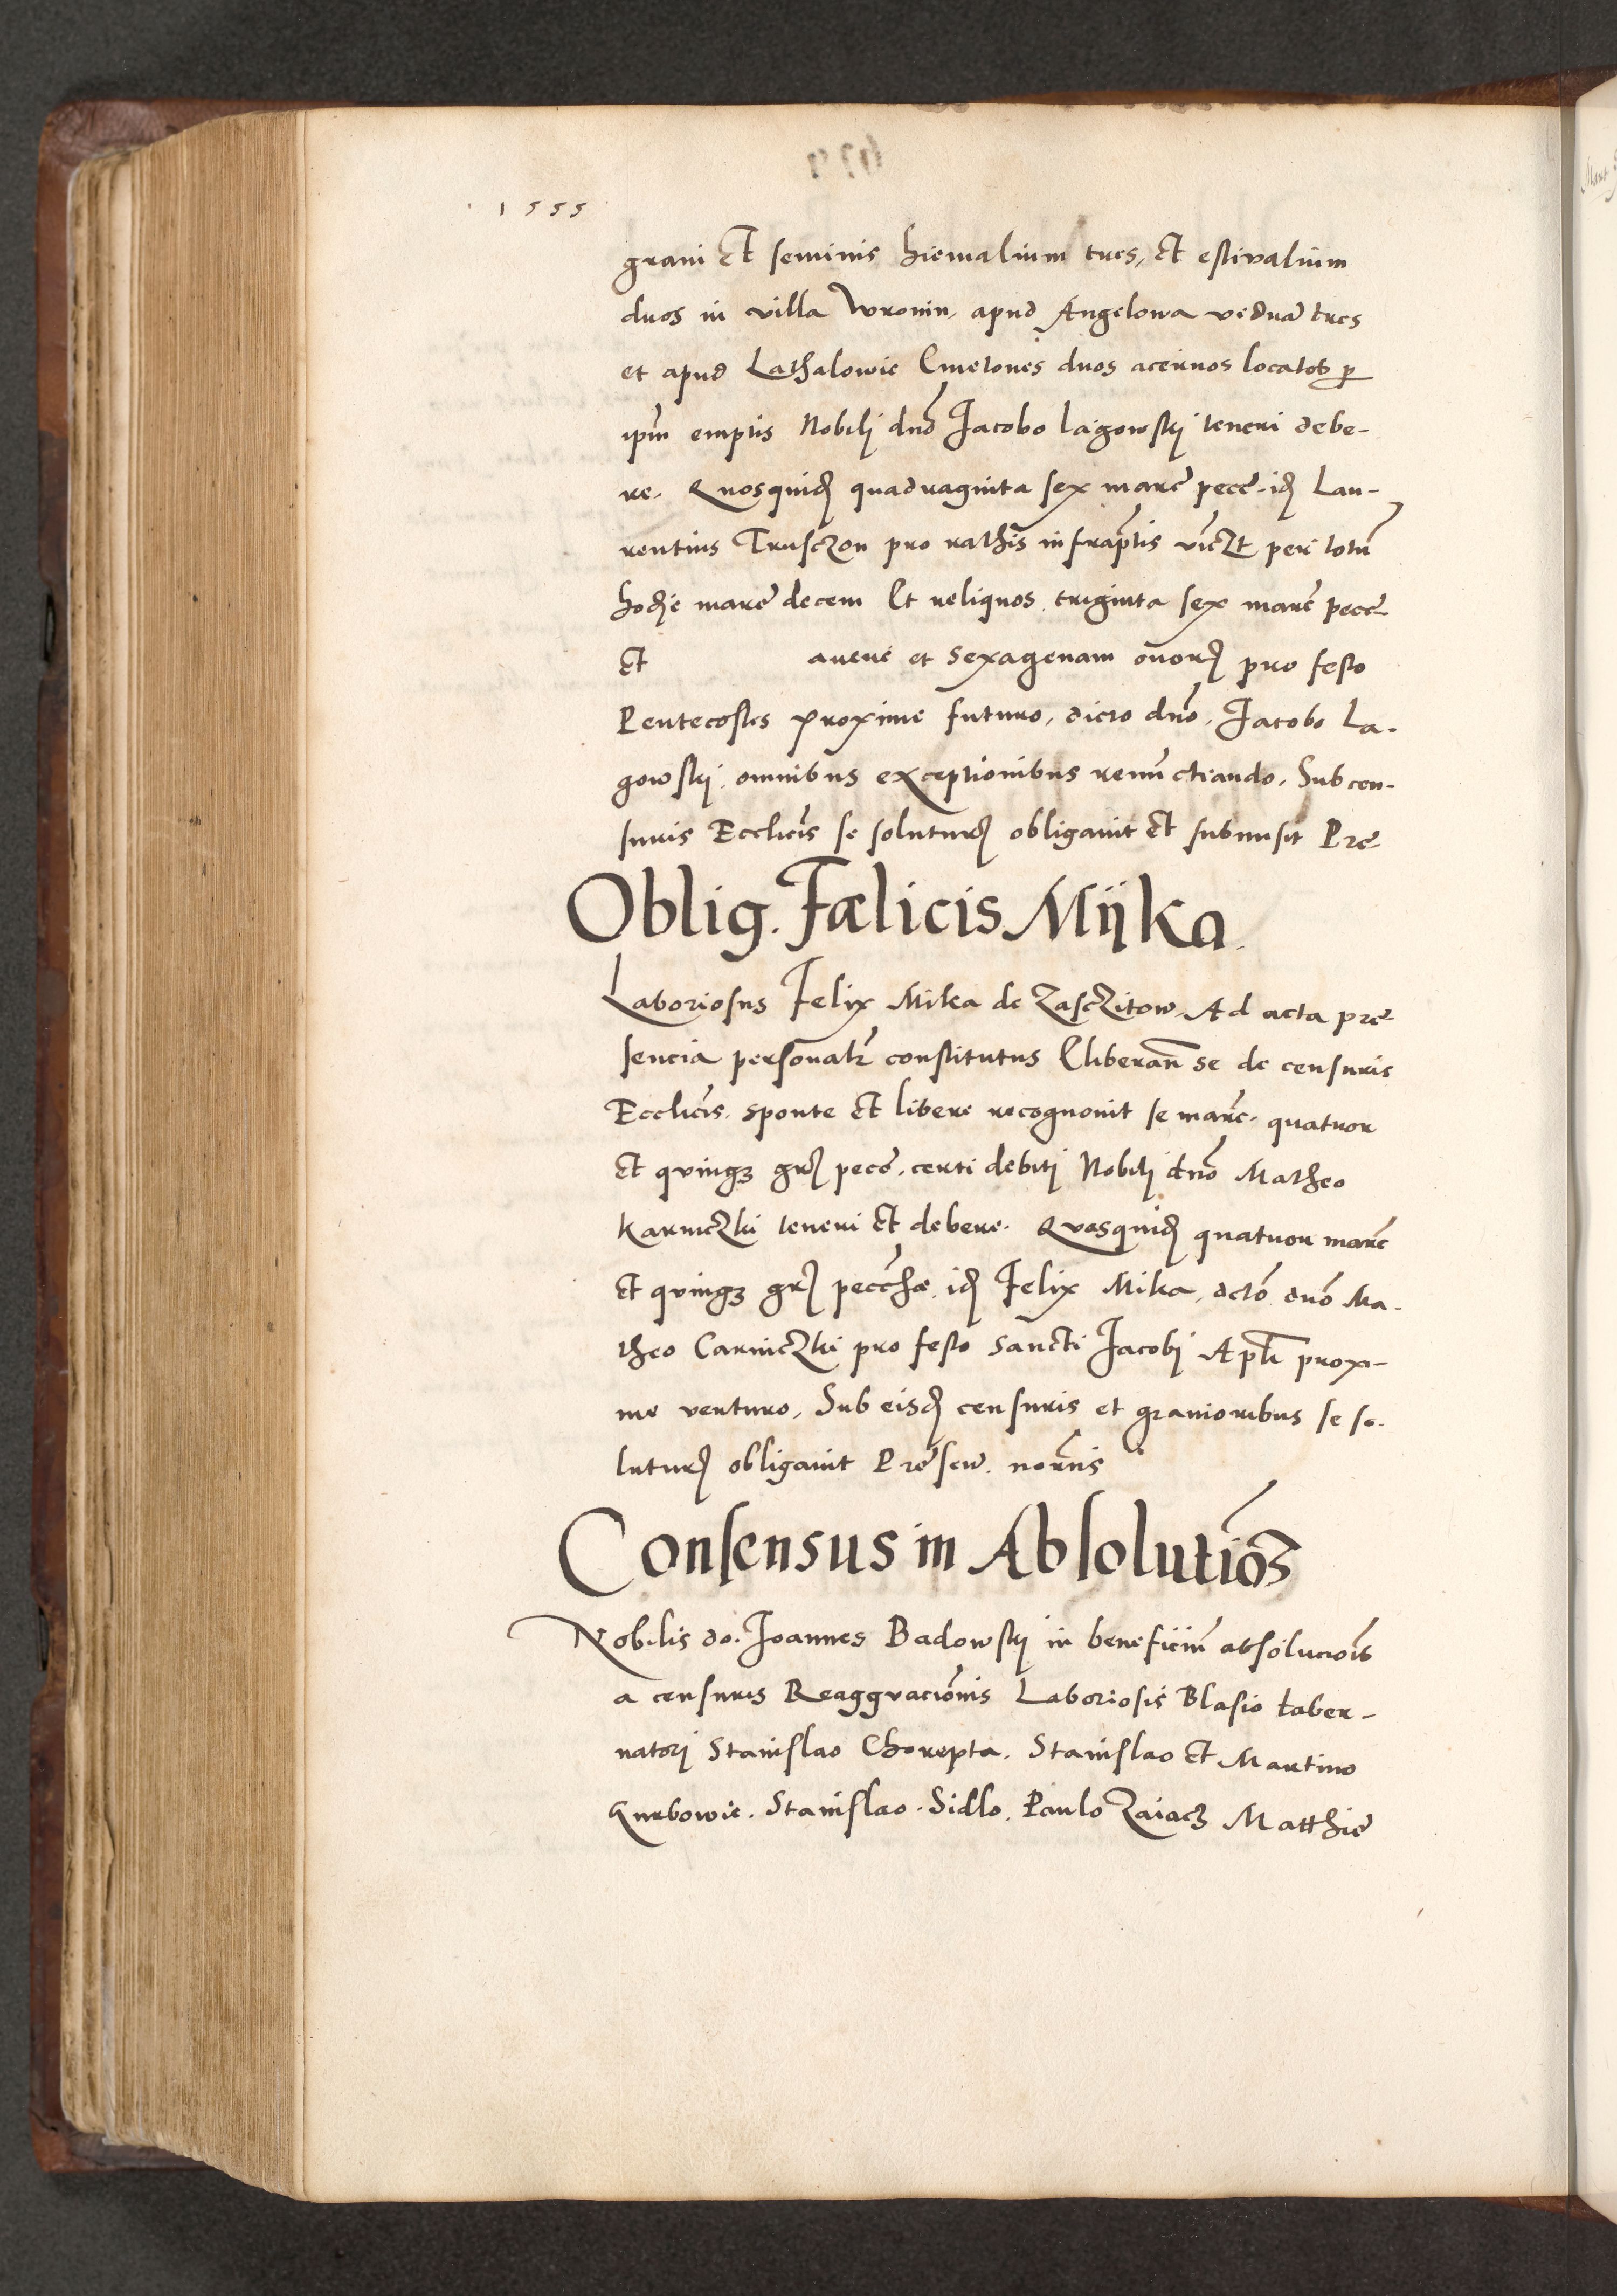 1555
grani et seminis hiemalium tres, et estivalium
duos in villa Wronin, apud Angelowa vedua tres
et apud Lathalowie Cmetones duos acervos locatos p
ipm emptis Nobili dno Jacobo Lagowskj teneri debe-
re. Quosquid quadraginta sex marc pecc. id Lau-
rentius Trusczon pro rathis infraptis viczt per totu
hodie marc decem Et reliquos triginta sex marc pecc
et avene et sexagenam ovor pro festo
Pentecostes proxime futuro, dicto dno Jacobo La-
gowskj omnibus exceptionibus renunctiando. Sub cen-
suris Ecclicis se solutur obligavit et submisit Pre
Oblig. Fælicis Mijka
Laboriosus Felix Mika de Zasczitow Ad acta pre-
sencia personalr constitutus Cliberan se de censuris
Ecclicis sponte et libere recognovit se marc. quatuor
et quinq gr pecc. certi debiti Nobili dno Matheo
Karniczki teneri et debere. Quosquid quatuor marc
et quinq gr pecche. id Felix Mika, dcto dno Ma-
theo Carniczki pro festo Sancti Jacobj Apli proxi-
me venturo, Sub eisd censuris et gravioribus se so-
lutur obligavit Presen. nornis
Consensus in Absolutio
Nobilis do. Joannes Badowskj in beneficiu absolucois
a censuris Reaggravacionis Laboriosis Blasio taber-
natori Stanislao Chorepta. Stanislao et Martino
Gurbowie. Stanislao Sidlo. Paulo Zaiacz Matthie